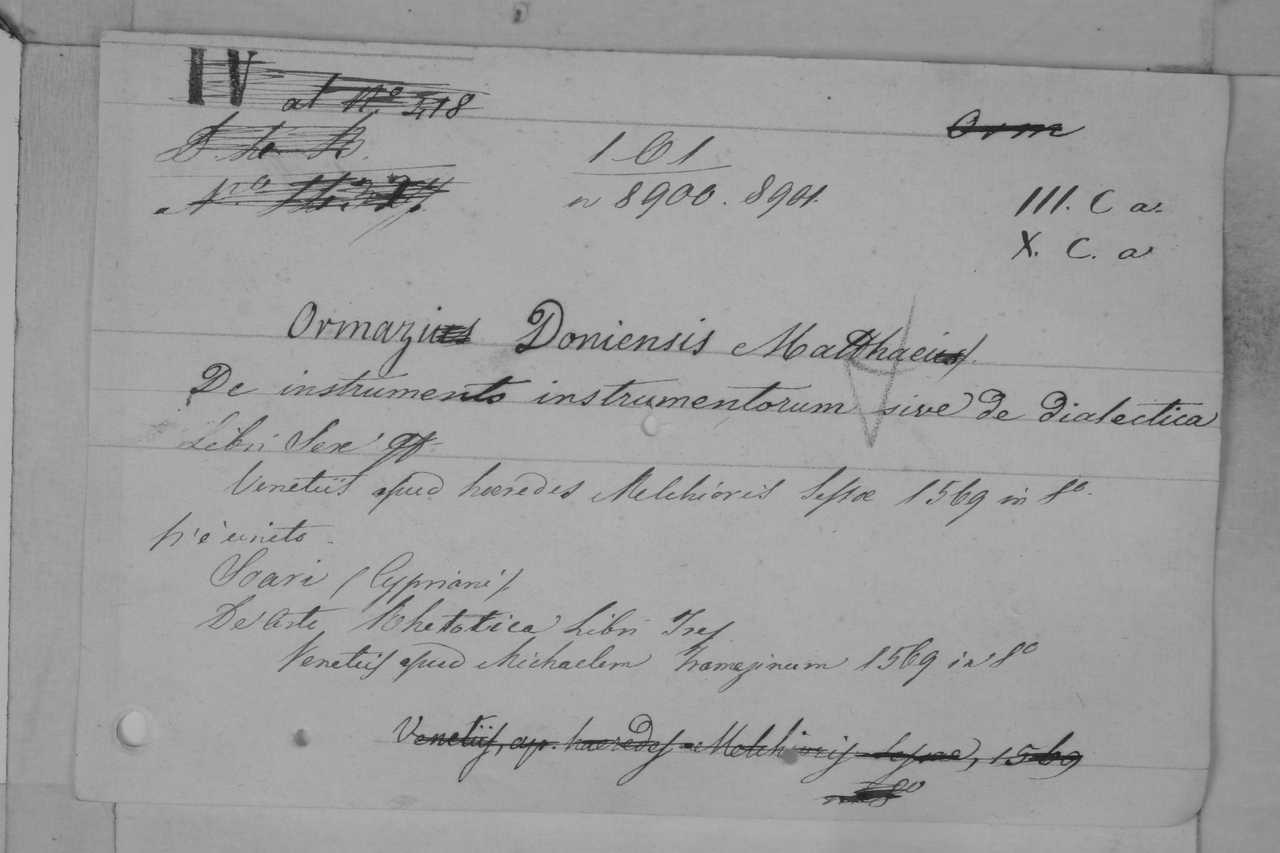 IV al N.º 418
Orm
161
n 8900. 8901
III. C a.
X. C. a
Ormazius Doniensis Matthaeius
De instrumento instrumentorum sive de dialectica
Libri Sex
Venetiis apud hœredes Melchioris Sessæ 1569 in 8º.
v'è unito
Soari (Cypriani)
De Arte Rhetorica Libri Tres
Venetiis apud Michaelem Tramezinum 1569 in 8º
Venetiis, ap. haeredes Melchioris Sessae, 1569
in 8º